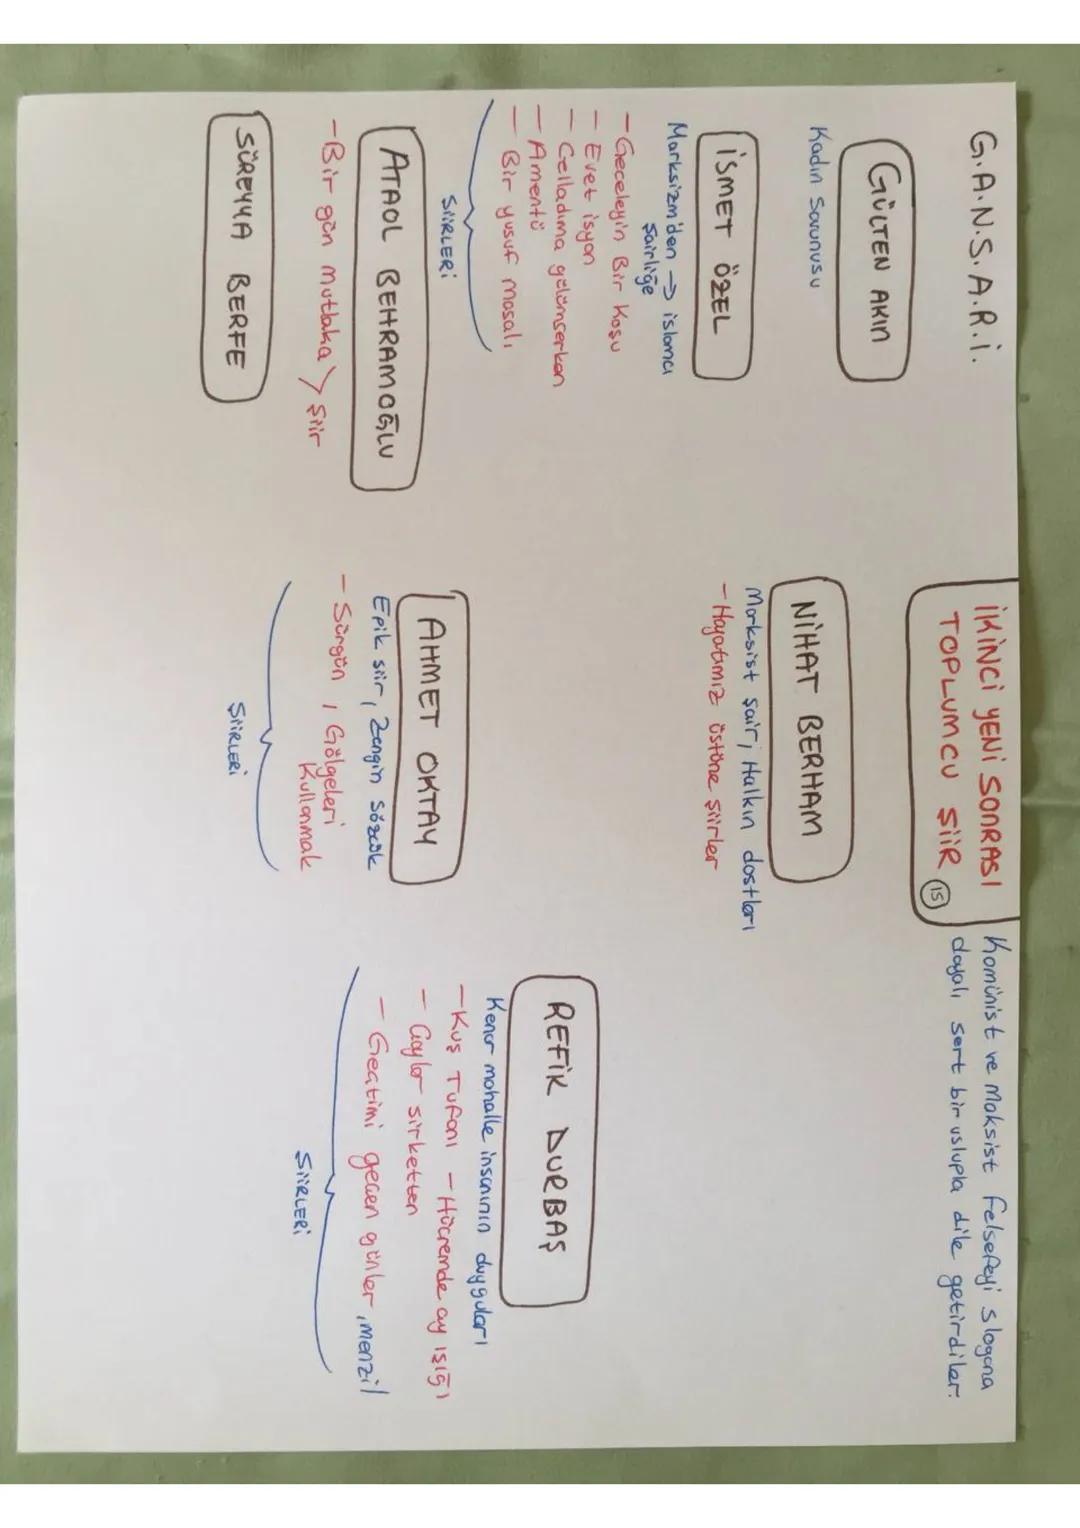 G.A.N.S.A.R.İ.
İKİNCİ YENİ SONRASI
TOPLUMCU ŞİİR 15
Komünist ve Maksist felsefeyi slogana
dayalı sert bir uslupla dile getirdiler.
GÜLTEN AKIN
Kadın Savunusu
İSMET ÖZEL
Marksizm'den → islamcı
şairliğe
- Geceleyin Bir Koşu
- Evet isyan
- Celladıma gülümserken
- Amentü
- Bir yusuf masalı
ŞİİRLERİ
ATAOL BEHRAMOĞLU
- Bir gün mutlaka > şiir
SÜREYYA BERFE
NİHAT BERHAM
Marksist şair, Halkın dostları
- Hayatımız üstüne şiirler
AHMET OKTAY
Epik şiir, Zengin sözcük
- Sürgün, Gölgeleri
Kullanmak
ŞİİRLERİ
REFİK DURBAŞ
Kenar mahalle insanının duyguları
- Kuş Tufanı - Hücremde ay ışığı
- Çaylar şirketten
- Geçtimi geçen günler, menzil
ŞİİRLERİ